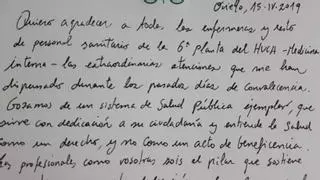 Oviedo, 15-IV-2019
Quiero agradecer a todas las enfermeras y resto
de personal sanitario de la 6ª planta del HUCA -Medicina
interna- las extraordinarias atenciones que me han
dispensado durante los pasados días de convalecencia.
Gozamos de un sistema de Salud Pública ejemplar, que
sirve con dedicación a su ciudadanía y entiende la salud
como un derecho, y no como un acto de beneficencia.
Los profesionales como vosotras sois el pilar que sostiene